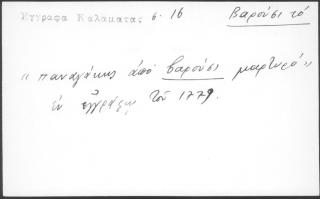 Ἔγγραφα Καλαμάτας σ. 16 Βαρούσι τό
"Παναγάκης ἀπό Βαρούσι μαρτυρῶ"
ἐν ἐγγράφῳ τοῦ 1779.